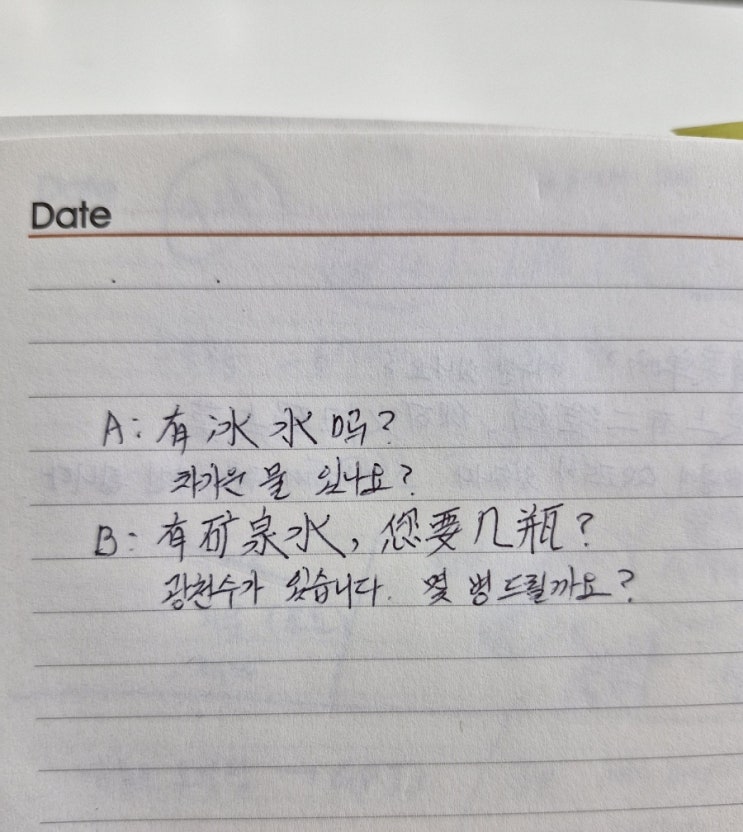 Date
A: 有冰水吗?
차가운 물 있나요?
B: 有矿泉水, 您要几瓶?
광천수가 있습니다. 몇 병 드릴까요?